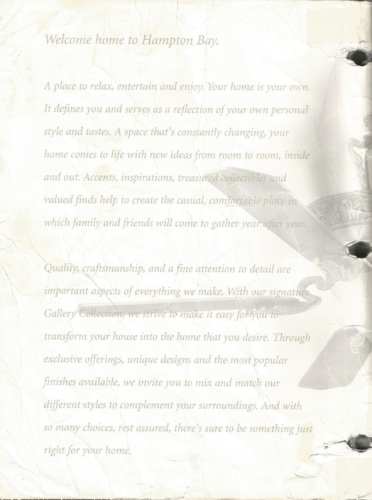 Welcome home to Hampton Bay.
A place to relax, entertain and enjoy. Your home is your own.
It defines you and serves as a reflection of your own personal
style and tastes. A space that's constantly changing, your
home comes to life with new ideas from room to room, inside
and out. Accents, inspirations, treasured collectibles and
valued finds help to create the casual, comfortable place in
which family and friends will come to gather year after year.
Quality, craftsmanship, and a fine attention to detail are
important aspects of everything we make. With our signature
Gallery Collection, we strive to make it easy for you to
transform your house into the home that you desire. Through
exclusive offerings, unique designs and the most popular
finishes available, we invite you to mix and match our
different styles to complement your surroundings. And with
so many choices, rest assured, there's sure to be something just
right for your home.